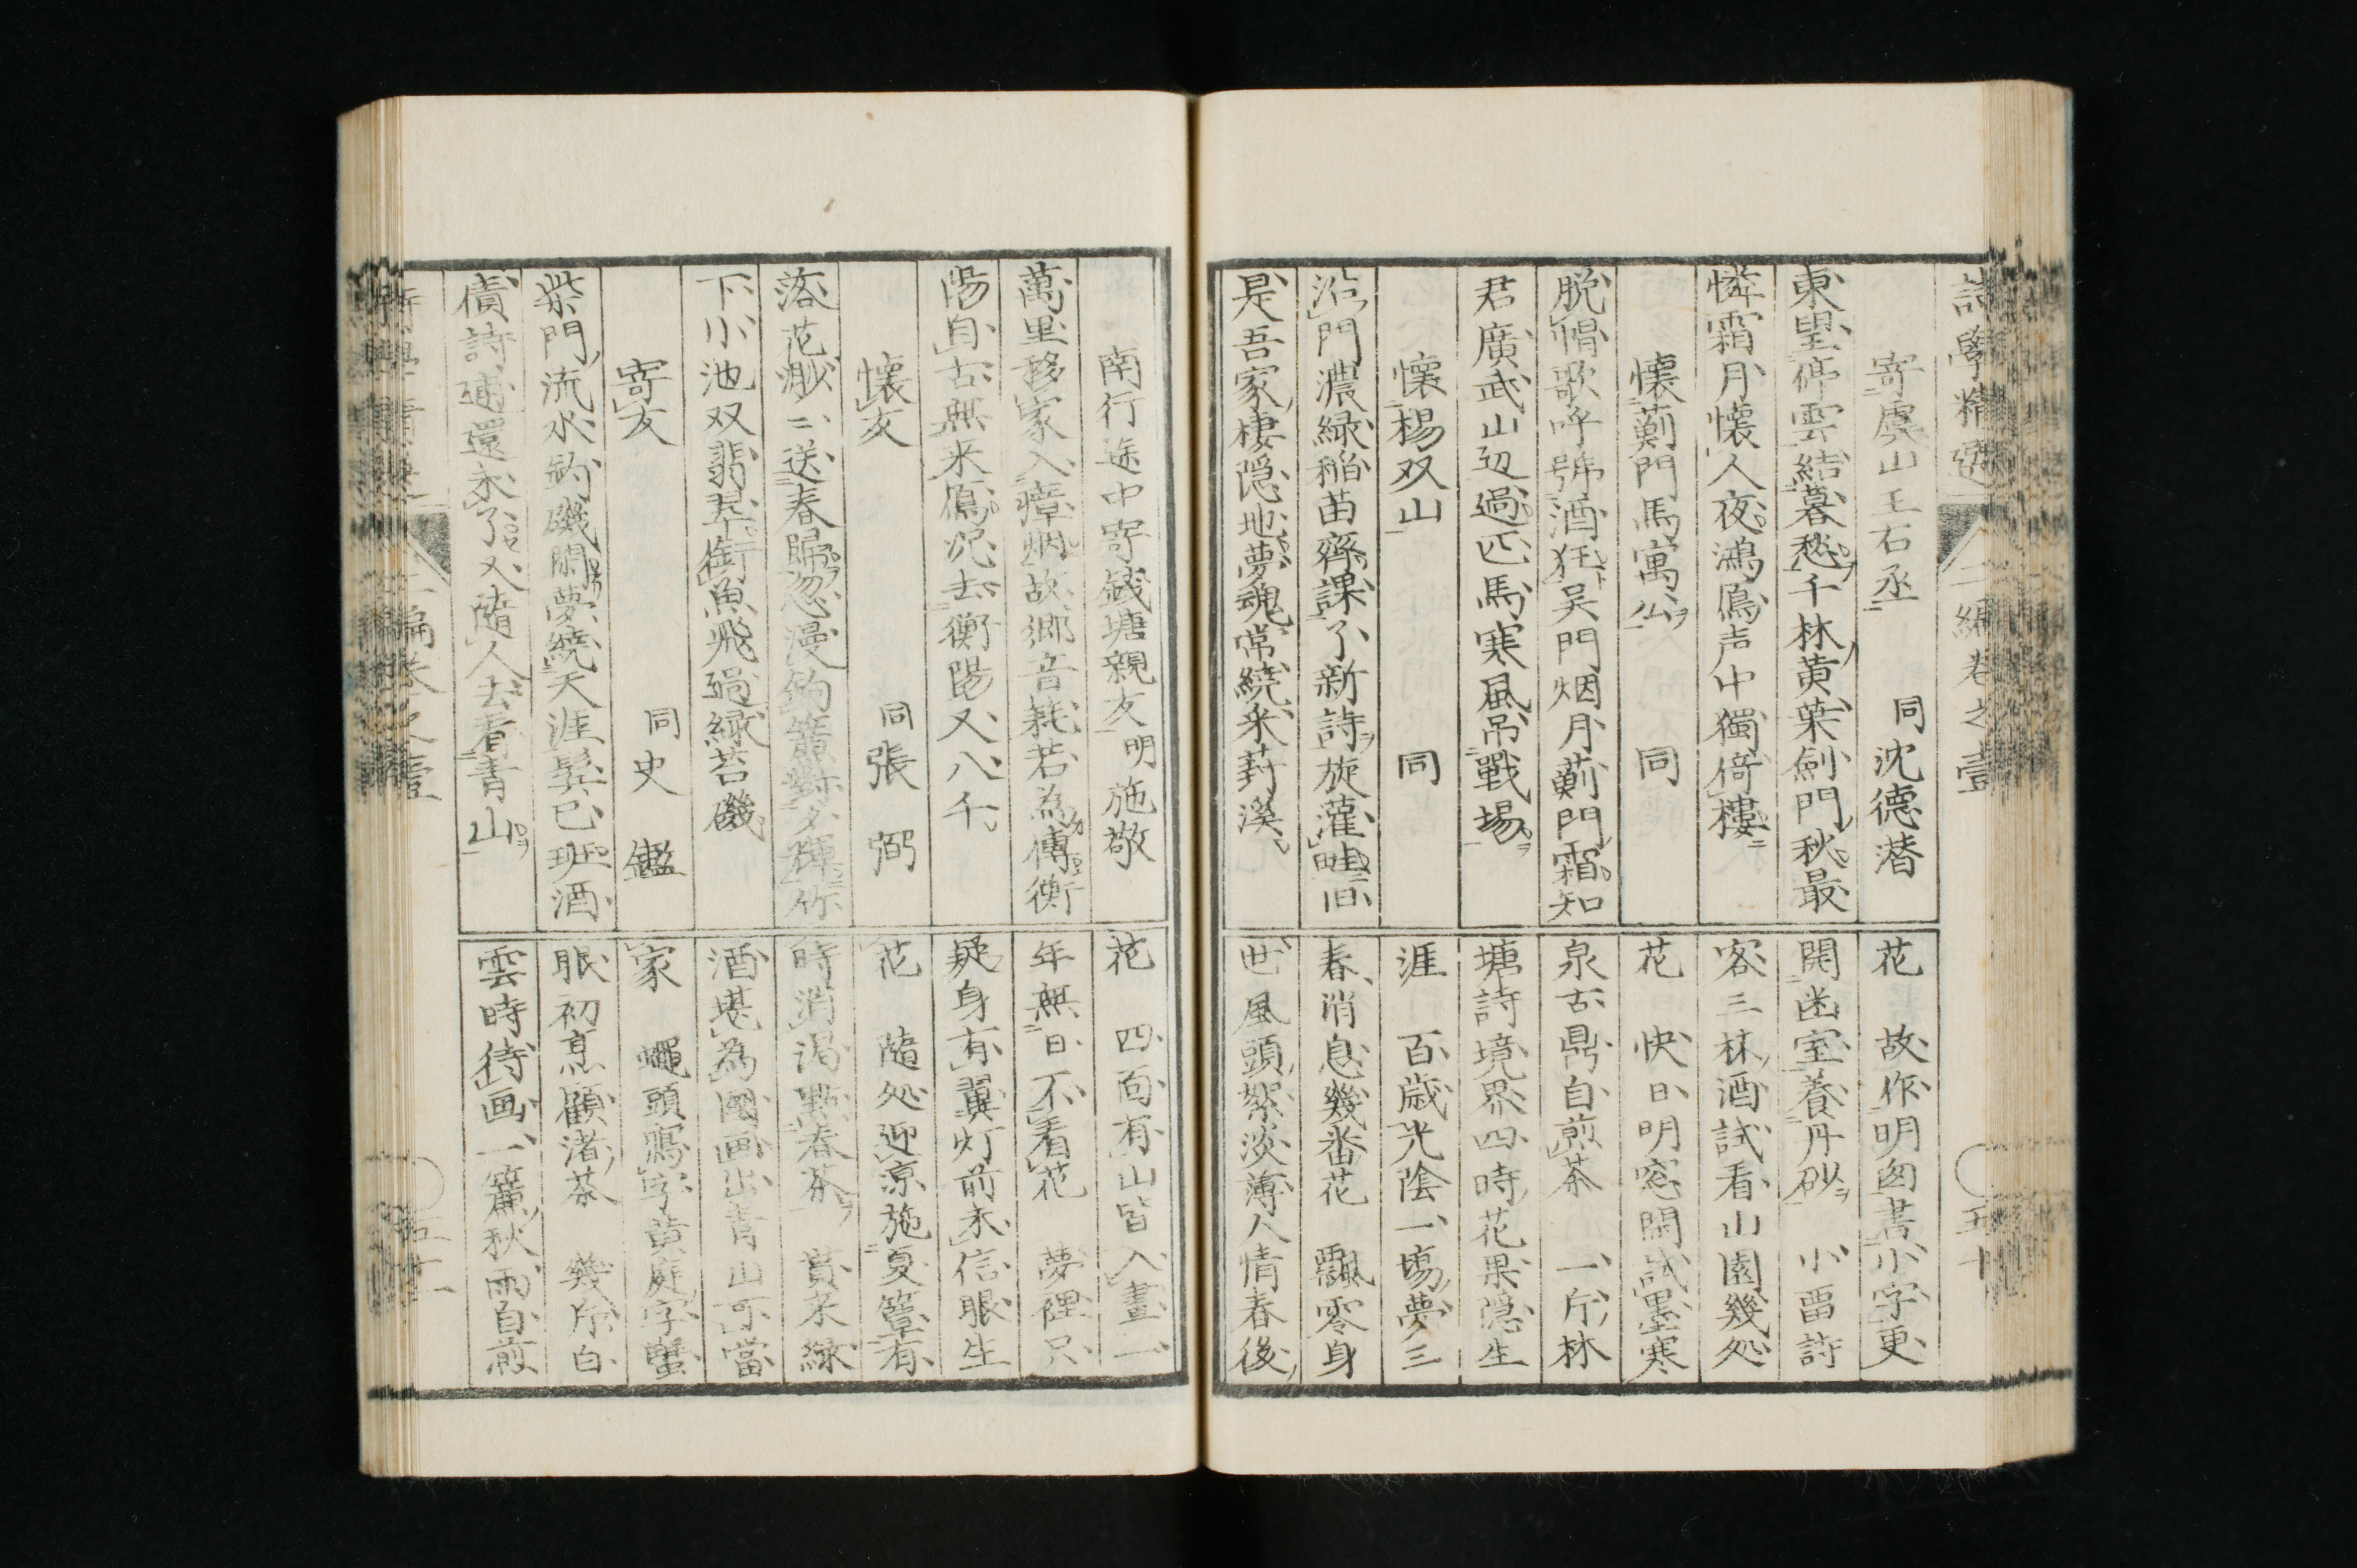 寄虞山王右丞 同沈德潜
東望停雲結暮愁千林黃葉劍門秋最
憐霜月懷人夜鴻鴈声中獨倚樓
懷薊門馬寓公 同
脱帽歌呼號酒狂吴門烟月薊門霜知
君廣武山辺過匹馬寒風吊戰場
懷楊双山 同
沿門濃緑稲苗齊課了新詩旋灌畦旧
是吾家棲隐地夢魂常繞釆葑溪
花 故作明囱書小字更
開凾室養丹砂 小畱詩
客三杯酒試看山園幾処
花 快日明窓閑試墨寒
泉古鼎自煎茶 一斤林
塘詩境界四時花果隠生
涯 百歳光陰一場夢三
春消息幾番花 飄零身
世風頭絮淡薄人情春後
南行途中寄錢塘親友 明施敬
萬里移家入瘴烟故郷音耗若為傳衡
陽自古無来鴈况去衡陽又八千
懷友 同張弼
落花渺〻送春歸忽漫鈎簾對夕暉竹
下小池双翡翠銜魚飛過緑苔磯
寄友 同史鑑
柴門流水釣磯閑夢繞天涯鬂已班酒
債詩逋還未了又隨人去看青山
花 四面有山皆入畫一
年無日不看花 夢裡只
疑身有翼灯前未信眼生
花 隨処迎凉施夏簟有
時消渇點春茶 貰来緑
酒堪為國画出青山可當
家 蠅頭寫字黄庭字蟹
眼初烹顧渚茶 幾片白
雲時待画一簾秋雨自煎
詩學精選 二編卷之壹 五十